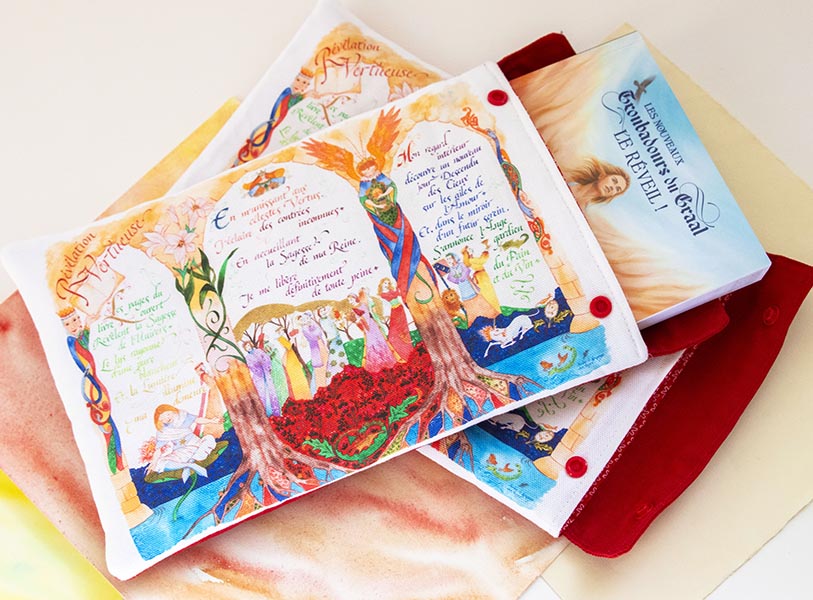 Révélation
Vertueuse
Révélation
Vertueuse
Les pages du
livre ouvert
Révèlent la Sagesse
de l'Univers.
et la Lumière
En m'unissant aux
célestes Vertus,
J'éclaire des contrées
inconnues.
En accueillant
la Sagesse
de ma Reine,
Je me libère
définitivement
de toute peine.
Mon regard
intérieur
découvre un nouveau
jour Descendu
des Cieux
sur les ailes de
l'Amour
Et, dans le miroir
d'un futur serein,
S'annonce l'Ange
gardien
du Pain
et du Vin.
LES NOUVEAUX
Troubadours du Graal
LE RÉVEIL !